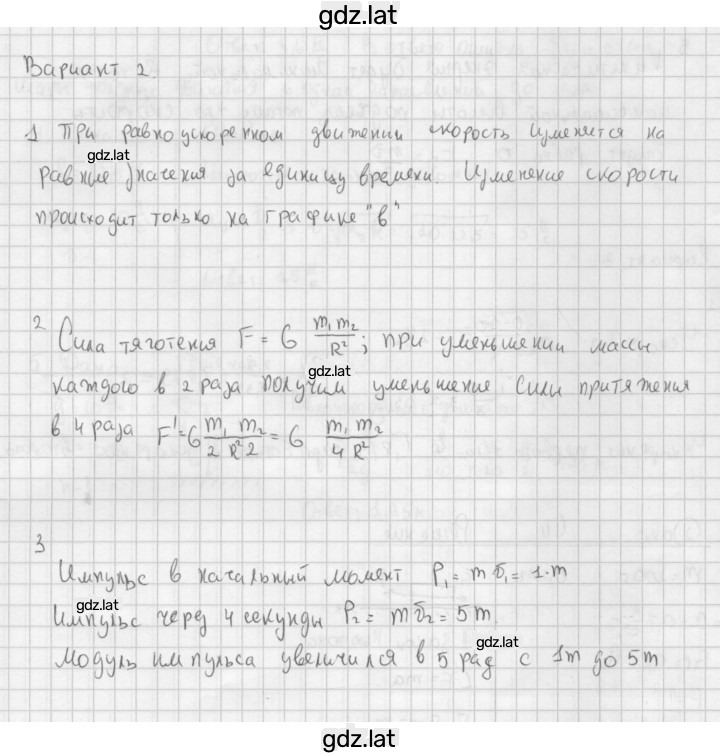 gdz.lat
Вариант 2
1 При равноускоренном движении скорость изменяется на
gdz.lat
равные значения за единицу времени. Изменение скорости
происходит только на графике "в"
2 Сила тяготения F = G m₁ m₂ / R² ; при уменьшении массы
gdz.lat
каждого в 2 раза получим уменьшение силы притяжения
в 4 раза F' = G m₁ m₂ / 2 R² 2 = G m₁ m₂ / 4 R²
3
Импульс в начальный момент P₁ = m v₁ = 1·m
gdz.lat
Импульс через 4 секунды P₂ = m v₂ = 5 m.
gdz.lat
Модуль импульса увеличился в 5 раз с 1m до 5m
gdz.lat